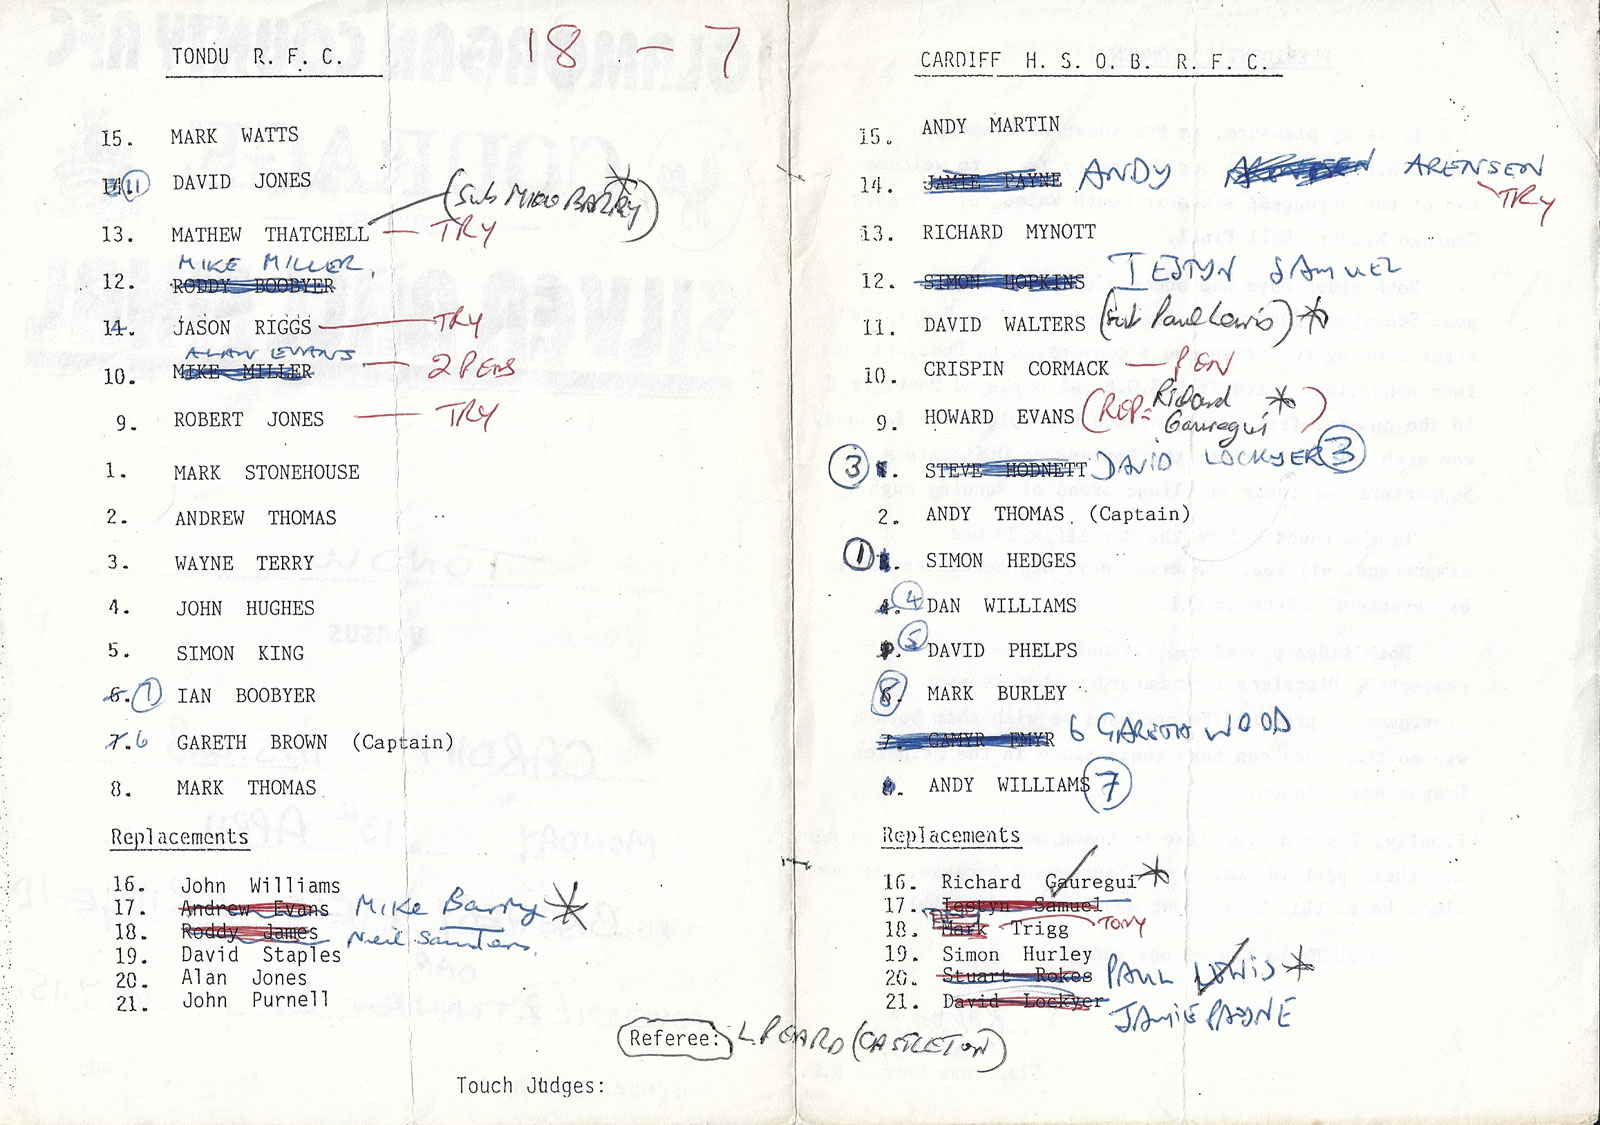 TONDU R. F. C.
18 - 7
15. MARK WATTS
11 DAVID JONES
(Sub MIKE BARRY) *
13. MATHEW THATCHELL — TRY
MIKE MILLER
12. RODDY BOOBYER
14. JASON RIGGS — TRY
ALAN EVANS
10. MIKE MILLER — 2 PENS
9. ROBERT JONES — TRY
1. MARK STONEHOUSE
2. ANDREW THOMAS
3. WAYNE TERRY
4. JOHN HUGHES
5. SIMON KING
6. 7 IAN BOOBYER
7. 6 GARETH BROWN (Captain)
8. MARK THOMAS
Replacements
16. John Williams
17. Andrew Evans Mike Barry *
18. Roddy James Neil Saunters
19. David Staples
20. Alan Jones
21. John Purnell
CARDIFF H. S. O. B. R. F. C.
15. ANDY MARTIN
14. JAMIE PAYNE ANDY ARENSEN
TRY
13. RICHARD MYNOTT
12. SIMON HOPKINS IESTYN SAMUEL
11. DAVID WALTERS (Sub Paul Lewis) *
10. CRISPIN CORMACK — PEN
9. HOWARD EVANS (REP= Richard Gauregui *)
3 STEVE HODNETT DAVID LOCKYER 3
2. ANDY THOMAS (Captain)
1 SIMON HEDGES
4 DAN WILLIAMS
5 DAVID PHELPS
8 MARK BURLEY
7. GAMYR EMYR 6 GARETH WOOD
8. ANDY WILLIAMS 7
Replacements
16. Richard Gauregui *
17. Iestyn Samuel
18. Mark Trigg TONY
19. Simon Hurley
20. Stuart Rokes PAUL LEWIS *
21. David Lockyer JAMIE PAYNE
Referee: L. PEARD (CASTLETON)
Touch Judges: